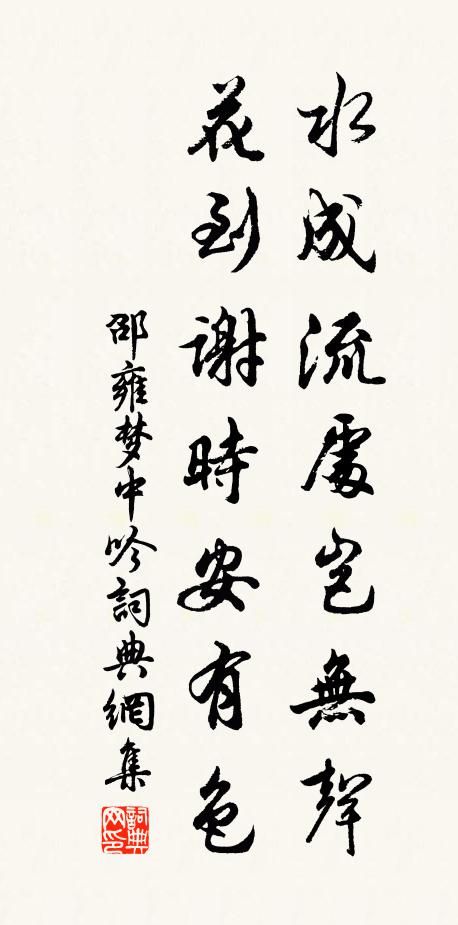 水成流處豈無聲
花到謝時安有色
邵雍梦中吟詞典網集
詞典
网印